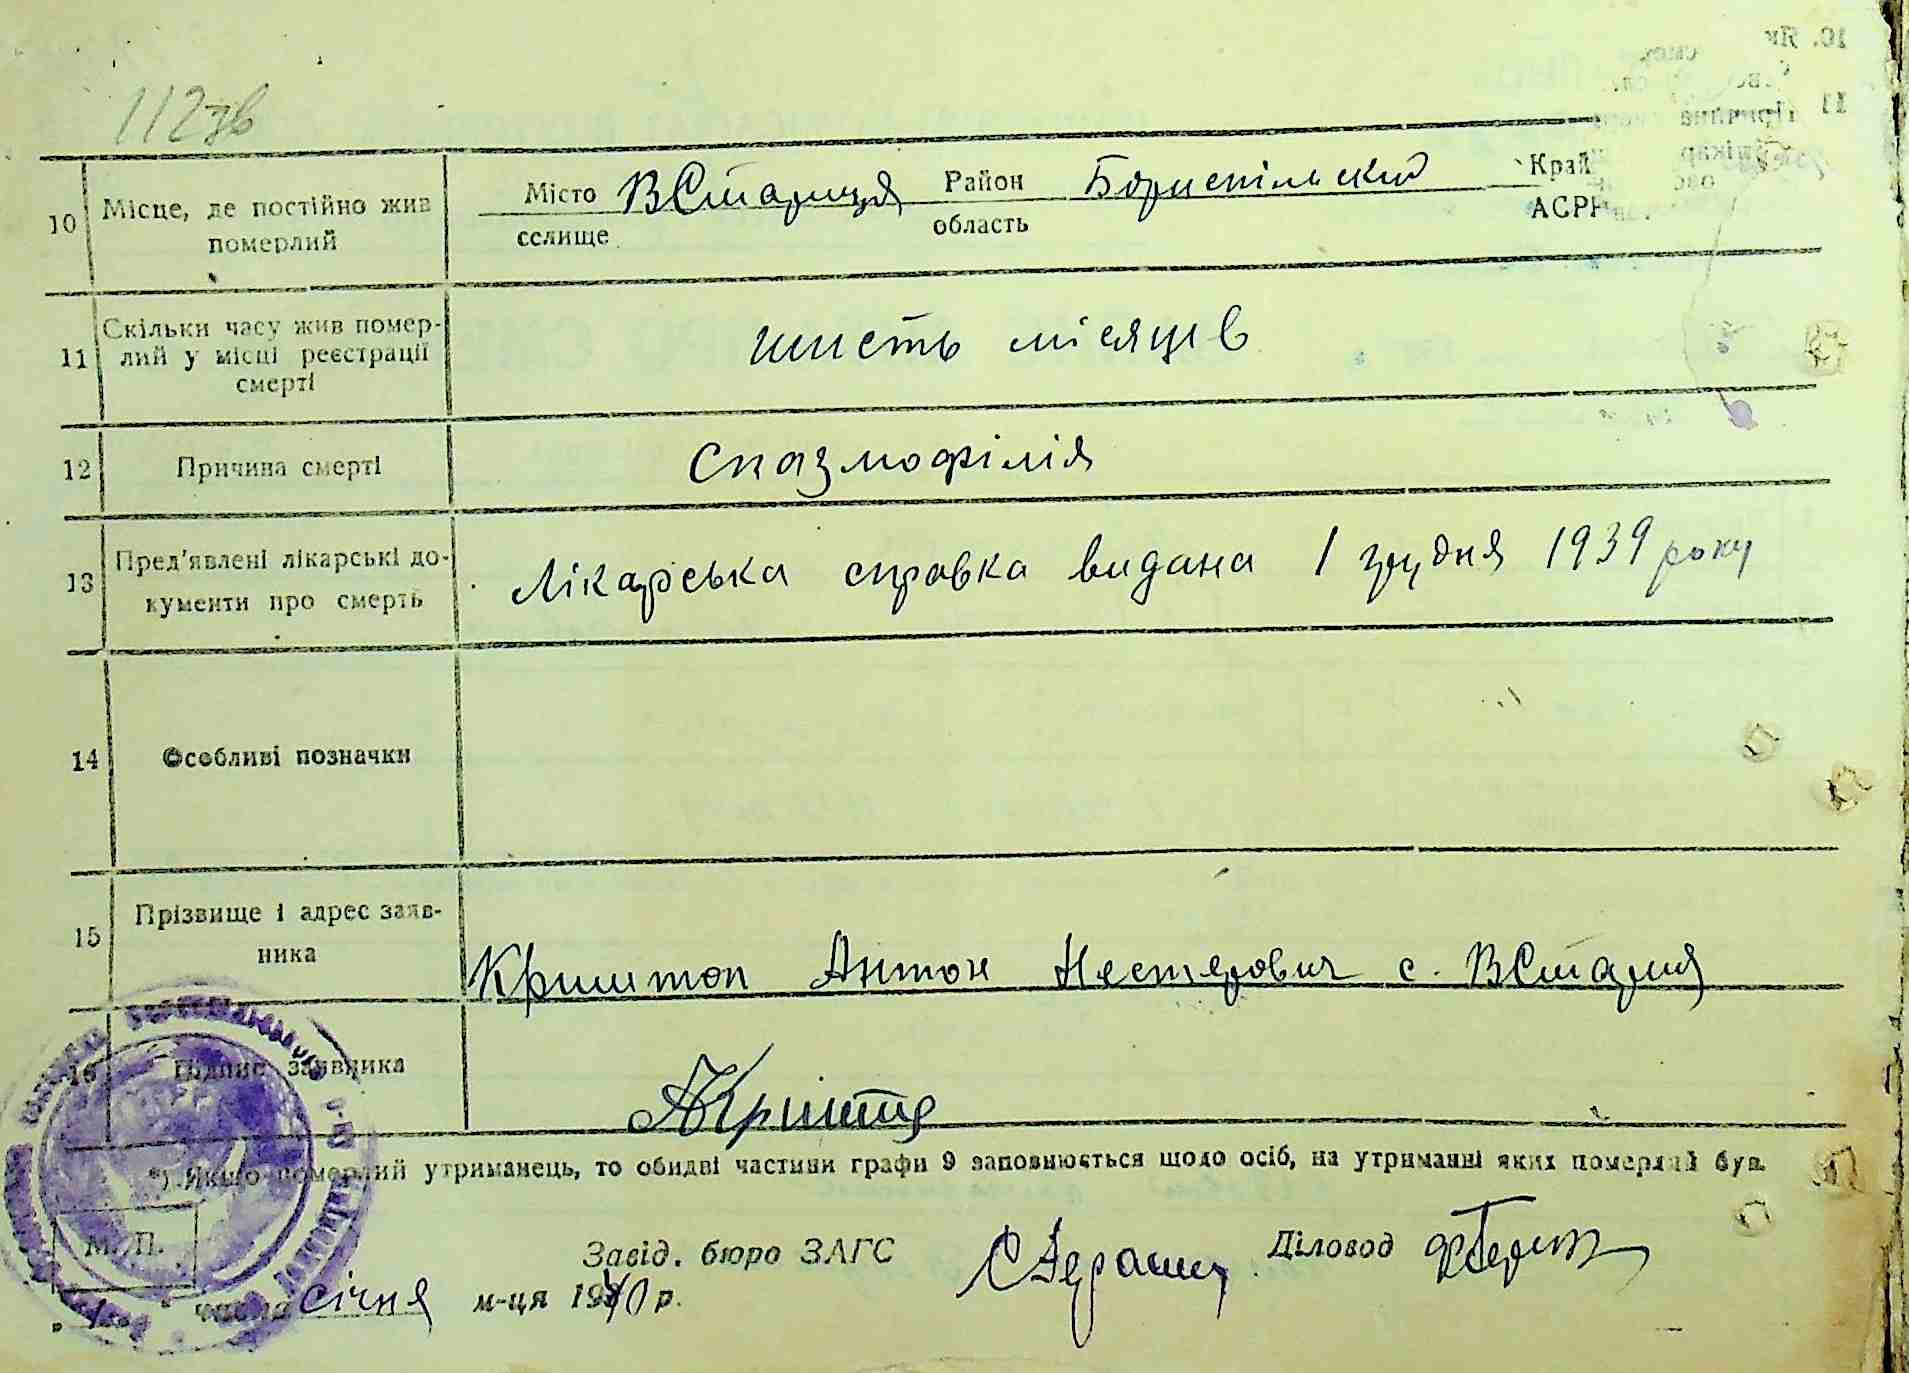 112зв
10 Місце, де постійно жив померлий Місто селище ВСтариця Район область Бориспільский Край АСРР
11 Скільки часу жив помер-
лий у місці реєстрації
смерті шисть місяцев
12 Причина смерті Спазмофілія
13 Пред'явлені лікарські до-
кументи про смерть Лікарська справка видана 1 грудня 1939 року
14 Особливі позначки
15 Прізвище і адрес заяв-
ника Криштоп Антон Нестерович с. ВСтариця
16 Підпис заявника АКришто
*) Якщо померлий утриманець, то обидві частини графи 9 заповнюється щодо осіб, на утриманні яких померлий був.
М. П. Завід. бюро ЗАГС Діловод
числа січня м-ця 1940 р.